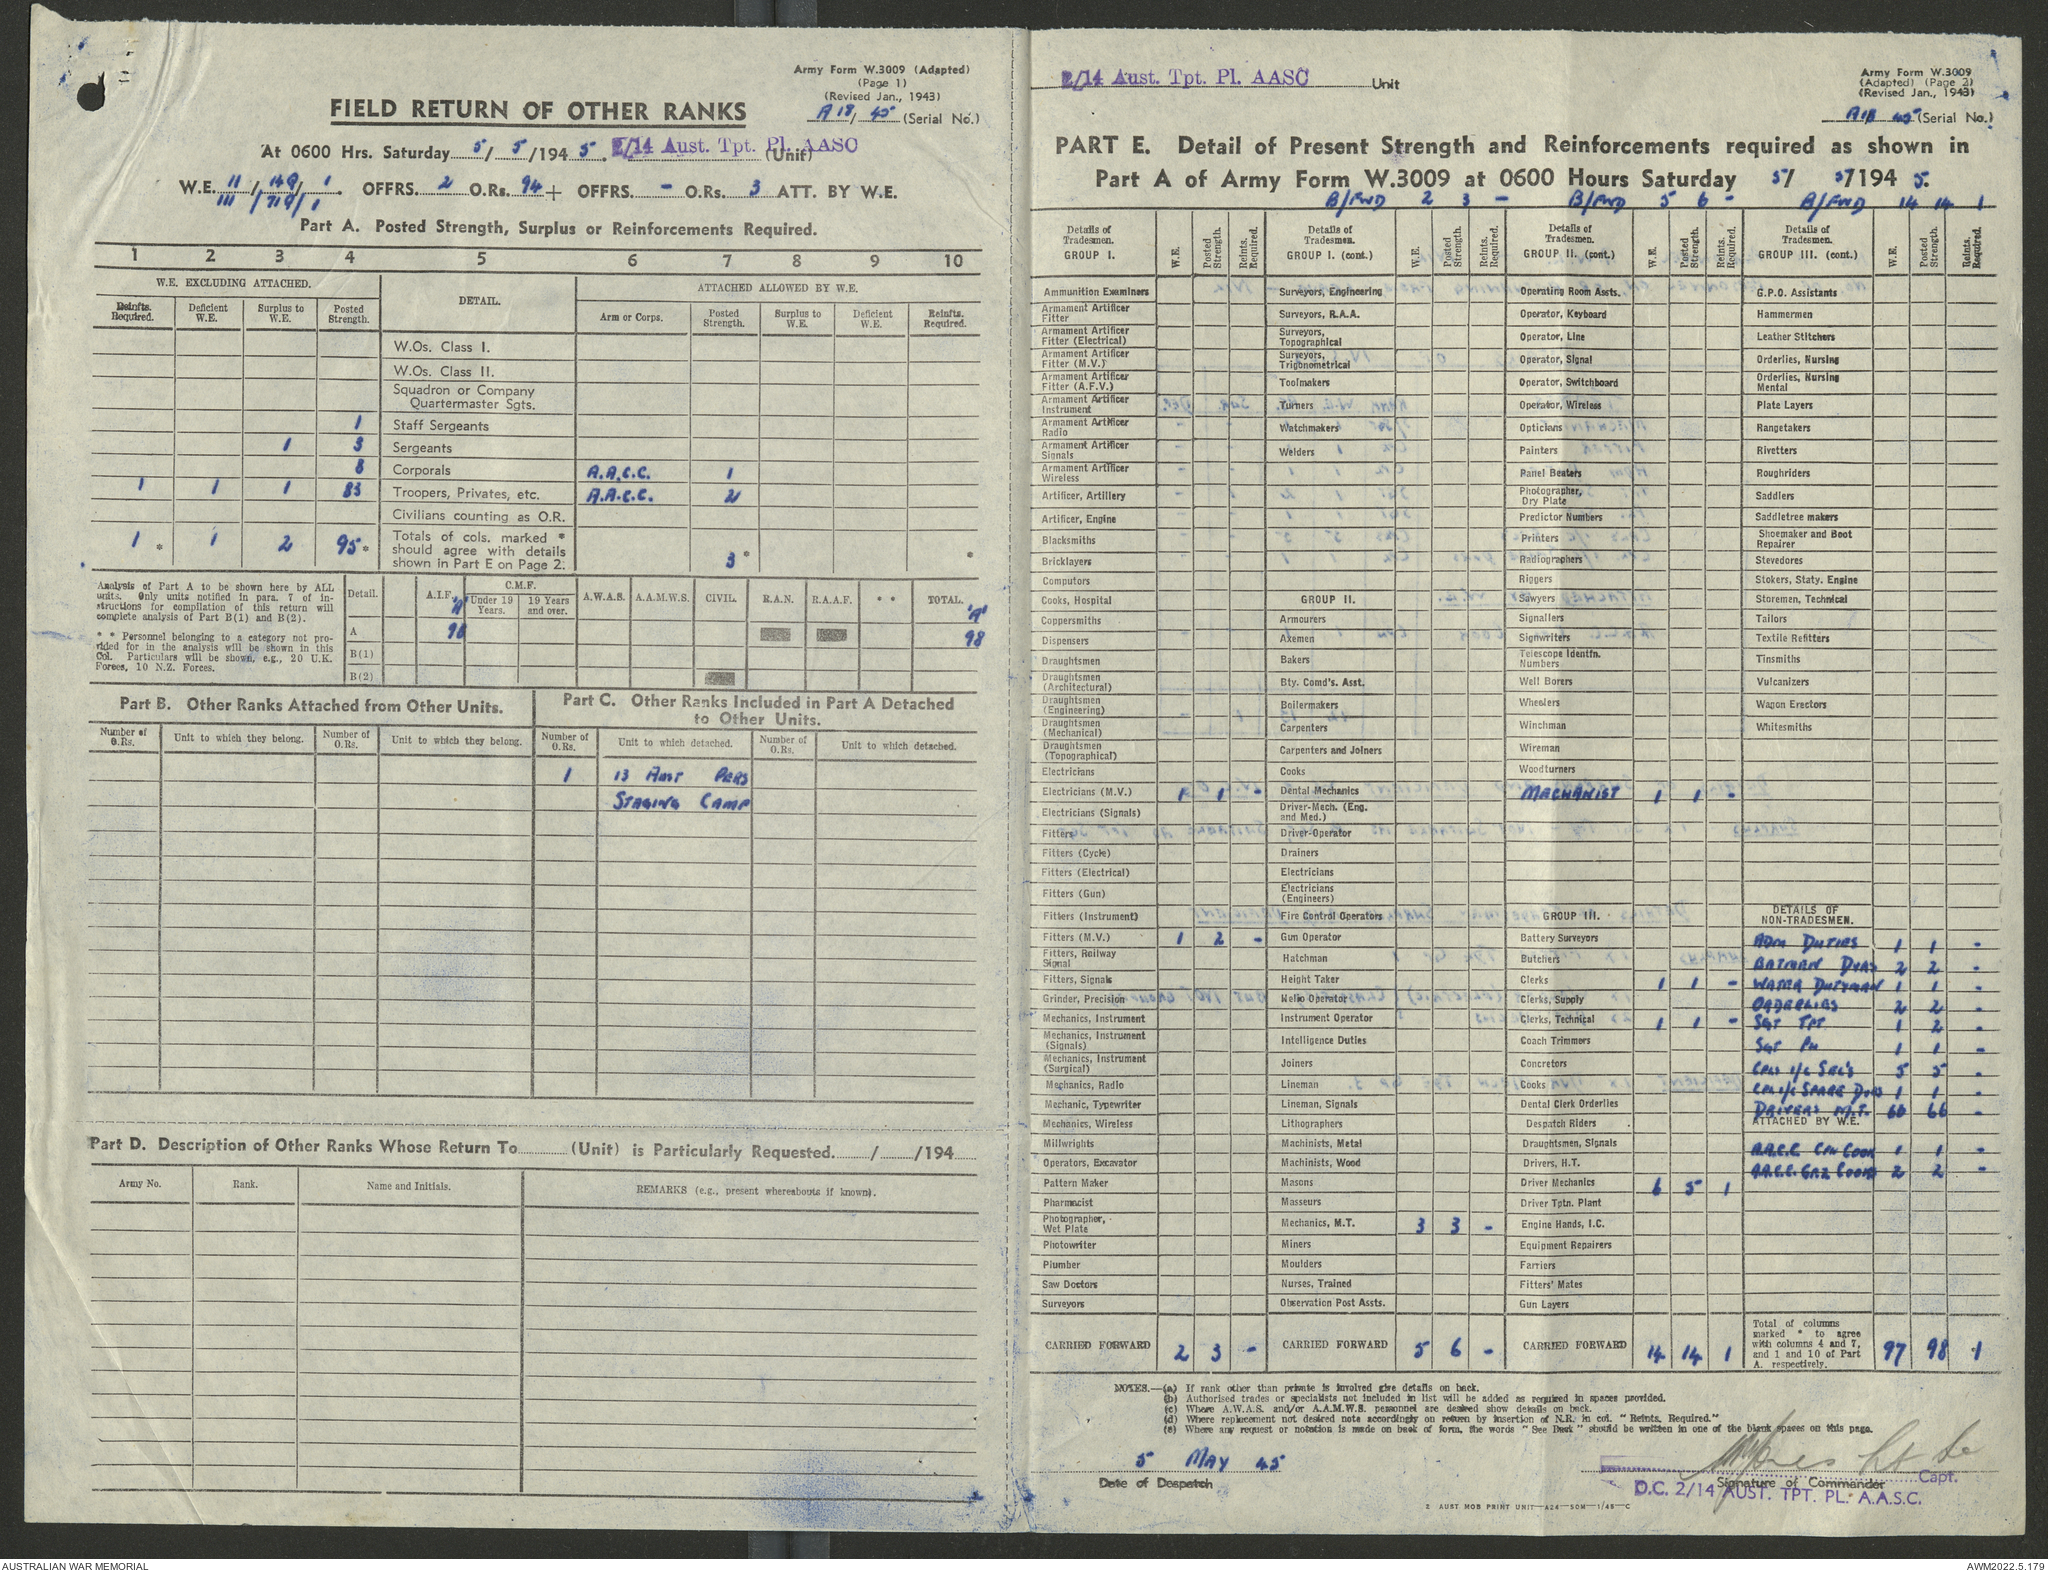 Army Form W.3009 (Adapted)
(Page 1)
(Revised Jan., 1943)
A 18/ 45 (Serial No.)
FIELD RETURN OF OTHER RANKS
At 0600 Hrs. Saturday 5/ 5/194 5. 2/14 Aust. Tpt. Pl. AASC (Unit)
W.E. II/149/1. OFFRS. 2 O.Rs. 94 + OFFRS. - O.Rs. 3 ATT. BY W.E.
III/719/1
Part A. Posted Strength, Surplus or Reinforcements Required.
1 2 3 4 5 6 7 8 9 10
W.E. EXCLUDING ATTACHED. DETAIL. ATTACHED ALLOWED BY W.E.
Reinfts. Required. Deficient W.E. Surplus to W.E. Posted Strength. Arm or Corps. Posted Strength. Surplus to W.E. Deficient W.E. Reinfts. Required.
W.Os. Class I.
W.Os. Class II.
Squadron or Company
Quartermaster Sgts.
1 Staff Sergeants
1 3 Sergeants
8 Corporals A.A.C.C. 1
1 1 1 83 Troopers, Privates, etc. A.A.C.C. 2
Civilians counting as O.R.
1 * 1 2 95 * Totals of cols. marked * should agree with details shown in Part E on Page 2. 3 * *
Analysis of Part A to be shown here by ALL
units. Only units notified in para. 7 of in-
structions for compilation of this return will
complete analysis of Part B(1) and B(2).
* * Personnel belonging to a category not pro-
vided for in the analysis will be shown in this
Col. Particulars will be shown, e.g., 20 U.K.
Forces, 10 N.Z. Forces.
Detail. A.I.F. C.M.F. Under 19 Years. 19 Years and over. A.W.A.S. A.A.M.W.S. CIVIL. R.A.N. R.A.A.F. * * TOTAL.
'A' 'A'
A 98 98
B(1)
B(2)
Part B. Other Ranks Attached from Other Units.
Number of O.Rs. Unit to which they belong. Number of O.Rs. Unit to which they belong.
Part C. Other Ranks Included in Part A Detached
to Other Units.
Number of O.Rs. Unit to which detached. Number of O.Rs. Unit to which detached.
1 13 Aust Pers
Staging Camp
Part D. Description of Other Ranks Whose Return To (Unit) is Particularly Requested. / /194
Army No. Rank. Name and Initials. REMARKS (e.g., present whereabouts if known).
2/14 Aust. Tpt. Pl. AASC Unit
Army Form W.3009
(Adapted) (Page 2)
(Revised Jan., 1943)
A18 45 (Serial No.)
PART E. Detail of Present Strength and Reinforcements required as shown in
Part A of Army Form W.3009 at 0600 Hours Saturday 5/ 5/194 5.
B/FWD 2 3 - B/FWD 5 6 - B/FWD 14 14 1
Details of Tradesmen. GROUP I. W.E. Posted Strength. Reints. Required.
Ammunition Examiners
Armament Artificer Fitter
Armament Artificer Fitter (Electrical)
Armament Artificer Fitter (M.V.)
Armament Artificer Fitter (A.F.V.)
Armament Artificer Instrument
Armament Artificer Radio
Armament Artificer Signals
Armament Artificer Wireless
Artificer, Artillery
Artificer, Engine
Blacksmiths
Bricklayers
Computors
Cooks, Hospital
Coppersmiths
Dispensers
Draughtsmen
Draughtsmen (Architectural)
Draughtsmen (Engineering)
Draughtsmen (Mechanical)
Draughtsmen (Topographical)
Electricians
Electricians (M.V.) 1 1 -
Electricians (Signals)
Fitters
Fitters (Cycle)
Fitters (Electrical)
Fitters (Gun)
Fitters (Instrument)
Fitters (M.V.) 1 2 -
Fitters, Railway Signal
Fitters, Signals
Grinder, Precision
Mechanics, Instrument
Mechanics, Instrument (Signals)
Mechanics, Instrument (Surgical)
Mechanics, Radio
Mechanic, Typewriter
Mechanics, Wireless
Millwrights
Operators, Excavator
Pattern Maker
Pharmacist
Photographer, Wet Plate
Photowriter
Plumber
Saw Doctors
Surveyors
CARRIED FORWARD 2 3 -
Details of Tradesmen. GROUP I. (cont.) W.E. Posted Strength. Reints. Required.
Surveyors, Engineering
Surveyors, R.A.A.
Surveyors, Topographical
Surveyors, Trigonometrical
Toolmakers
Turners
Watchmakers
Welders
GROUP II.
Armourers
Axemen
Bakers
Bty. Comd's. Asst.
Boilermakers
Carpenters
Carpenters and Joiners
Cooks
Dental Mechanics
Driver-Mech. (Eng. and Med.)
Driver-Operator
Drainers
Electricians
Electricians (Engineers)
Fire Control Operators
Gun Operator
Hatchman
Height Taker
Helio Operator
Instrument Operator
Intelligence Duties
Joiners
Lineman
Lineman, Signals
Lithographers
Machinists, Metal
Machinists, Wood
Masons
Masseurs
Mechanics, M.T. 3 3 -
Miners
Moulders
Nurses, Trained
Observation Post Assts.
CARRIED FORWARD 5 6 -
Details of Tradesmen. GROUP II. (cont.) W.E. Posted Strength. Reints. Required.
Operating Room Assts.
Operator, Keyboard
Operator, Line
Operator, Signal
Operator, Switchboard
Operator, Wireless
Opticians
Painters
Panel Beaters
Photographer, Dry Plate
Predictor Numbers
Printers
Radiographers
Riggers
Sawyers
Signallers
Signwriters
Telescope Identfn. Numbers
Well Borers
Wheelers
Winchman
Wireman
Woodturners
Machanist 1 1 -
GROUP III.
Battery Surveyors
Butchers
Clerks 1 1 -
Clerks, Supply
Clerks, Technical 1 1 -
Coach Trimmers
Concretors
Cooks
Dental Clerk Orderlies
Despatch Riders
Draughtsmen, Signals
Drivers, H.T.
Driver Mechanics 6 5 1
Driver Tptn. Plant
Engine Hands, I.C.
Equipment Repairers
Farriers
Fitters' Mates
Gun Layers
CARRIED FORWARD 14 14 1
Details of Tradesmen. GROUP III. (cont.) W.E. Posted Strength. Reints. Required.
G.P.O. Assistants
Hammermen
Leather Stitchers
Orderlies, Nursing
Orderlies, Nursing Mental
Plate Layers
Rangetakers
Rivetters
Roughriders
Saddlers
Saddletree makers
Shoemaker and Boot Repairer
Stevedores
Stokers, Staty. Engine
Storemen, Technical
Tailors
Textile Refitters
Tinsmiths
Vulcanizers
Wagon Erectors
Whitesmiths
DETAILS OF
NON-TRADESMEN.
Adm Duties 1 1 -
Batmen Dvrs 2 2 -
Water Dutyman 1 1 -
Orderlies 2 2 -
Sgt Tpt 1 2 -
Sgt Pn 1 1 -
Cpls i/c Sec's 5 5 -
Cpl i/c Spare Dvrs 1 1 -
Drivers M.T. 66 66 -
ATTACHED BY W.E.
A.A.C.C. Cpl Cook 1 1 -
A.A.C.C. Gnl Cooks 2 2 -
Total of columns marked * to agree with columns 4 and 7, and 1 and 10 of Part A. respectively. 97 98 1
NOTES.—(a) If rank other than private is involved give details on back.
(b) Authorised trades or specialists not included in list will be added as required in spaces provided.
(c) Where A.W.A.S. and/or A.A.M.W.S. personnel are desired show details on back.
(d) Where replacement not desired note accordingly on return by insertion of N.R. in col. "Reints. Required."
(e) Where any request or notation is made on back of form, the words "See Back" should be written in one of the blank spaces on this page.
5 May 45
Date of Despatch
Capt.
Signature of Commander
O.C. 2/14 AUST. TPT. PL. A.A.S.C.
2 AUST MOB PRINT UNIT—A24—50M—1/45—C
AUSTRALIAN WAR MEMORIAL
AWM2022.5.179